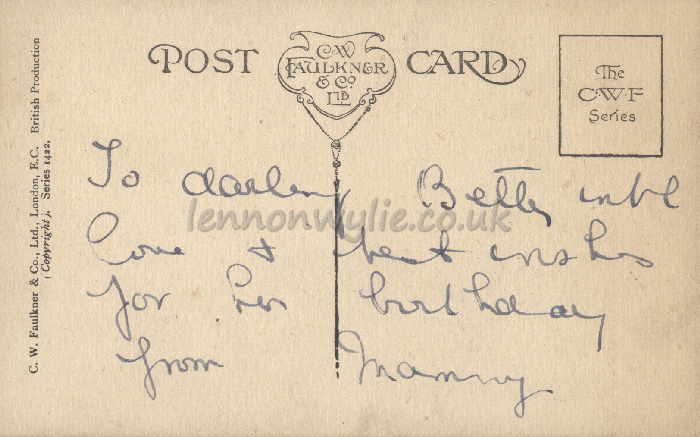 POST CARD
C·W
FAULKNER
& Co.
LTD
The
C·W·F
Series
C. W. Faulkner & Co., Ltd., London, E.C. British Production
(Copyright). Series 1422.
To darling Betty with
love & best wishes
for her birthday
from Mammy
lennonwylie.co.uk